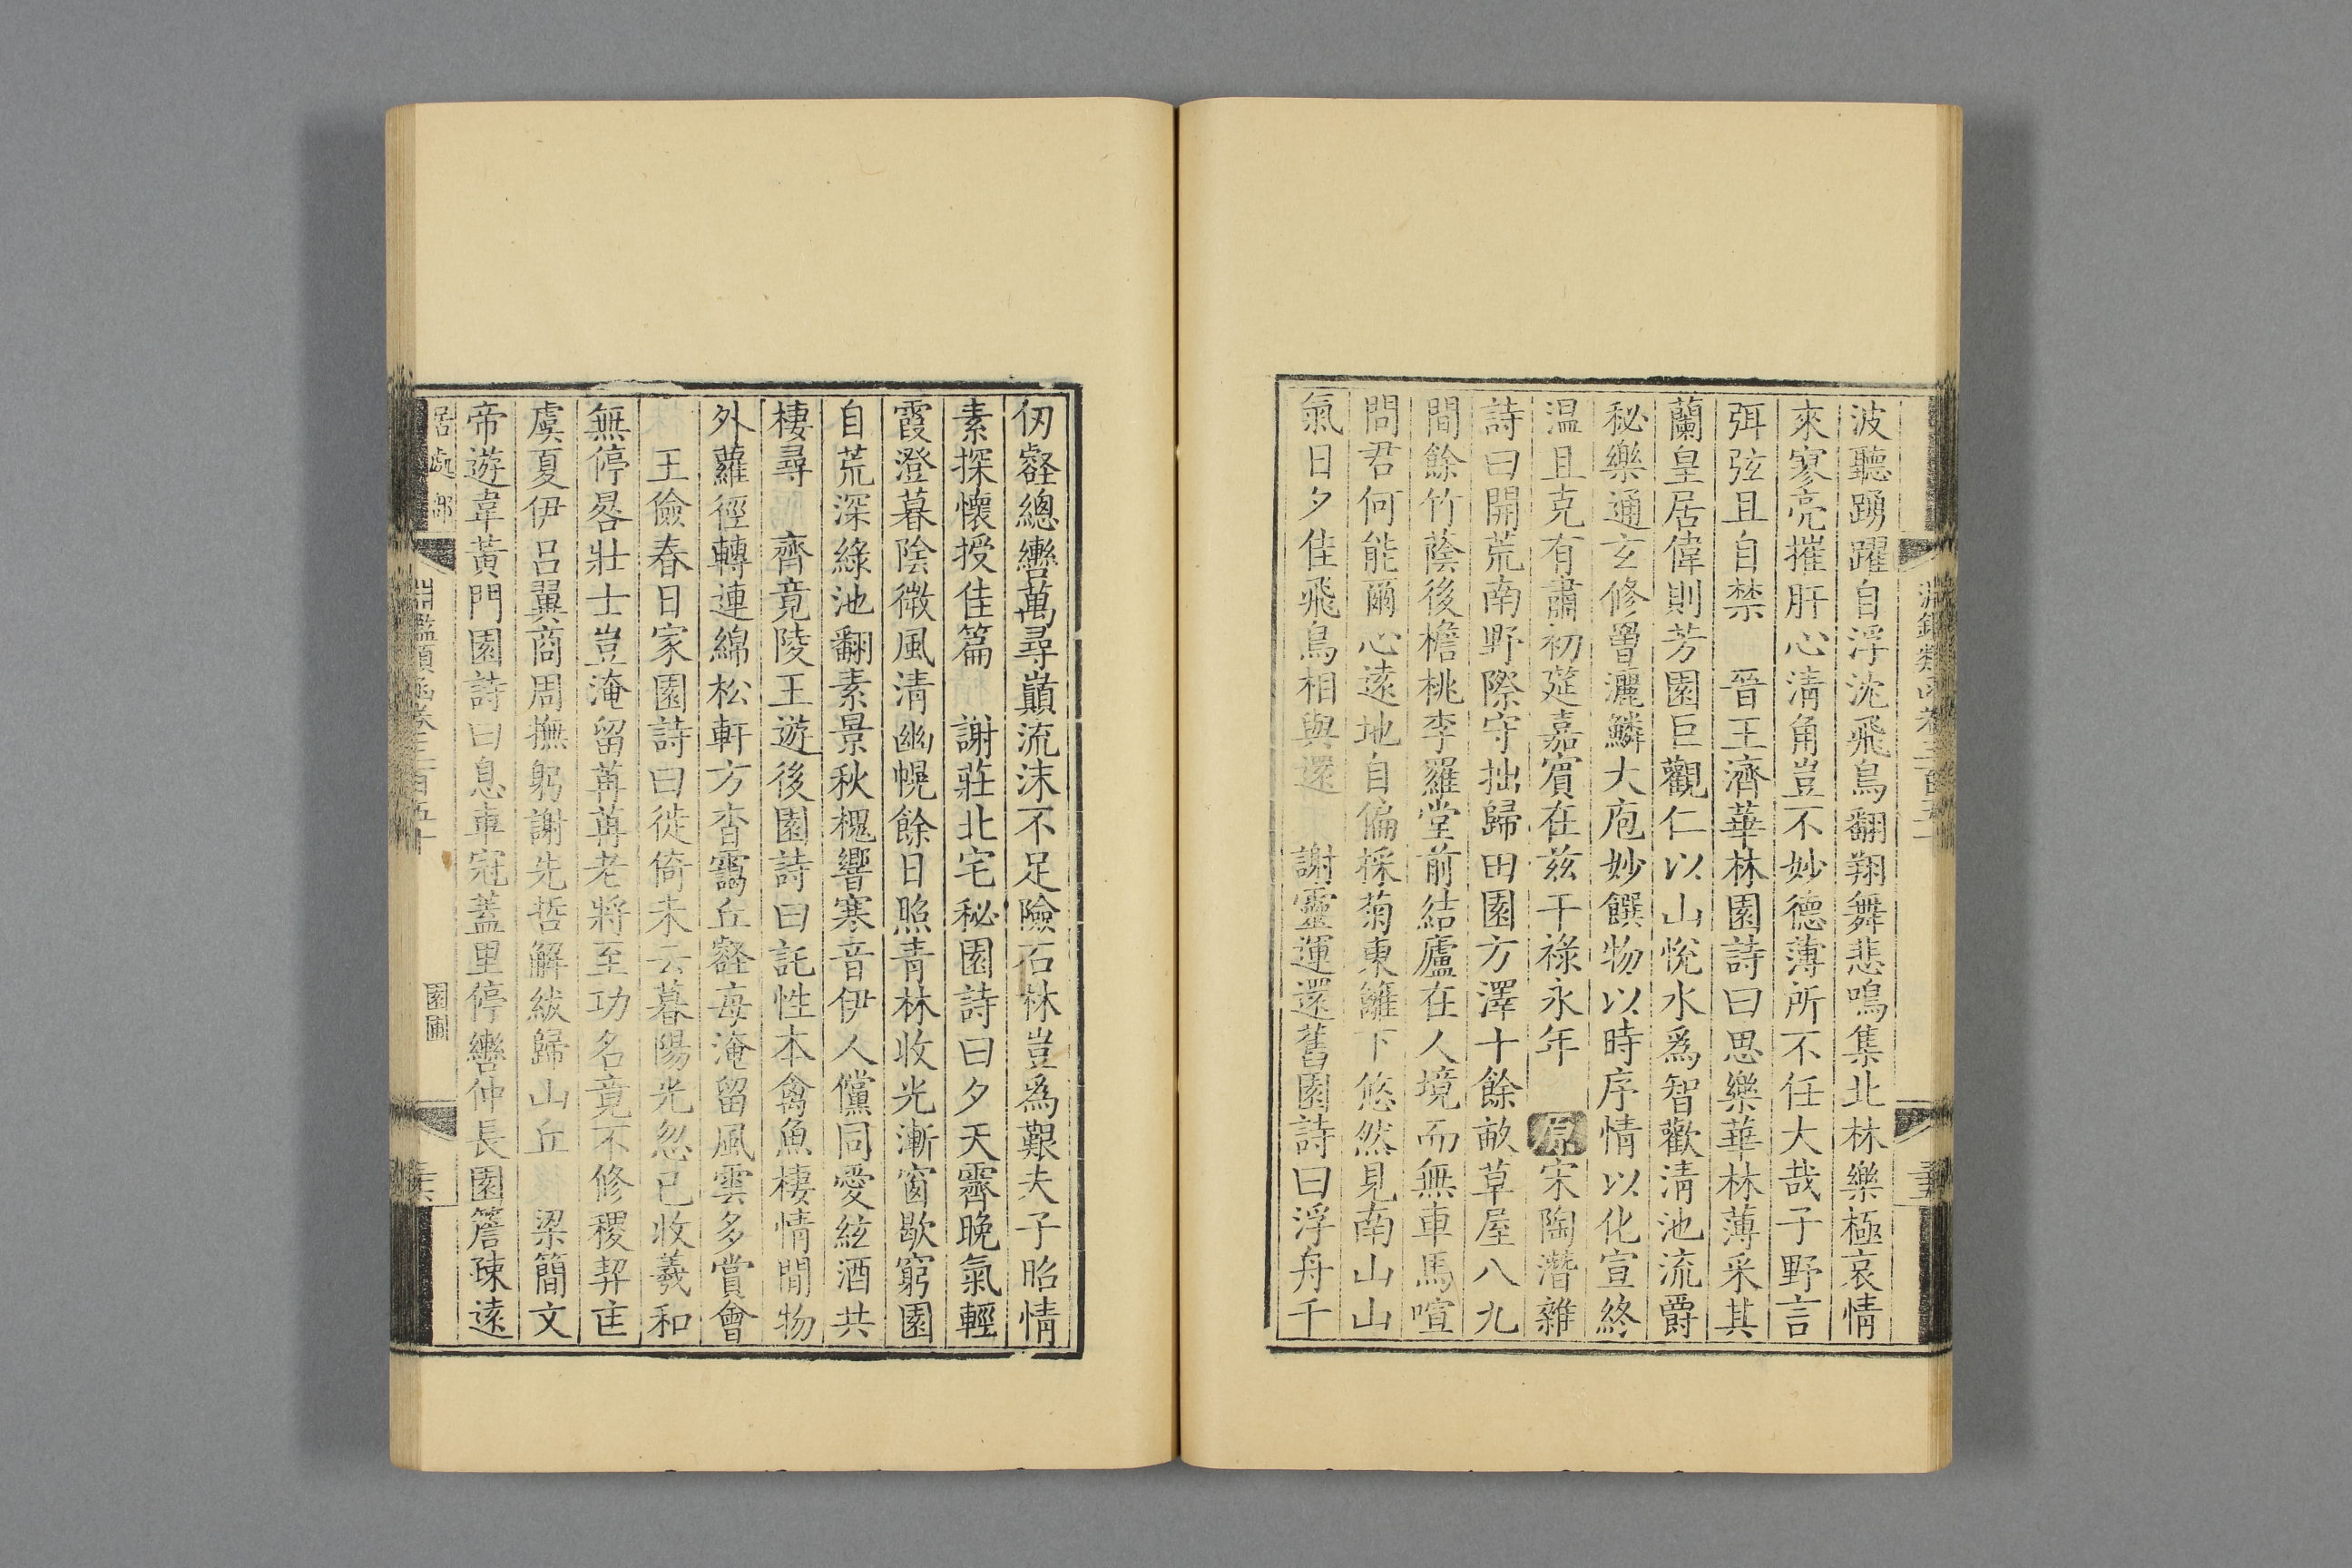 波聽踴躍自浮沈飛鳥翻翔舞悲鳴集北林樂極哀情
來寥亮摧肝心清角豈不妙德薄所不任大哉子野言
弭弦且自禁　晉王濟華林園詩曰思樂華林薄采其
蘭皇居偉則芳園巨觀仁以山悅水爲智歡清池流爵
秘樂通玄修罾灑鱗大庖妙饌物以時序情以化宣終
温且克有肅初筵嘉賓在兹干祿永年　原宋陶潛雜
詩曰開荒南野際守拙歸田園方澤十餘畝草屋八九
間餘竹蔭後檐桃李羅堂前結廬在人境而無車馬喧
問君何能爾心遠地自偏採菊東籬下悠然見南山山
氣日夕佳飛鳥相與還　謝靈運還舊園詩曰浮舟千
仞壑總轡萬尋巔流沫不足險石林豈爲艱夫子昭情
素探懷授佳篇　謝莊北宅秘園詩曰夕天霽晚氣輕
霞澄暮陰微風清幽幌餘日照青林收光漸窗歇窮園
自荒深綠池翻素景秋槐響寒音伊人儻同愛絃酒共
棲尋　齊竟陵王遊後園詩曰託性本禽魚棲情閒物
外蘿徑轉連綿松軒方杳靄丘壑每淹留風雲多賞會
王儉春日家園詩曰徙倚未云暮陽光忽已收羲和
無停晷壯士豈淹留苒苒老將至功名竟不修稷契匡
虞夏伊呂翼商周撫躬謝先哲解紱歸山丘　梁簡文
帝遊韋黃門園詩曰息車冠蓋里停轡仲長園簷疎遠
居處部
淵鑑類函卷三百五十
園圃